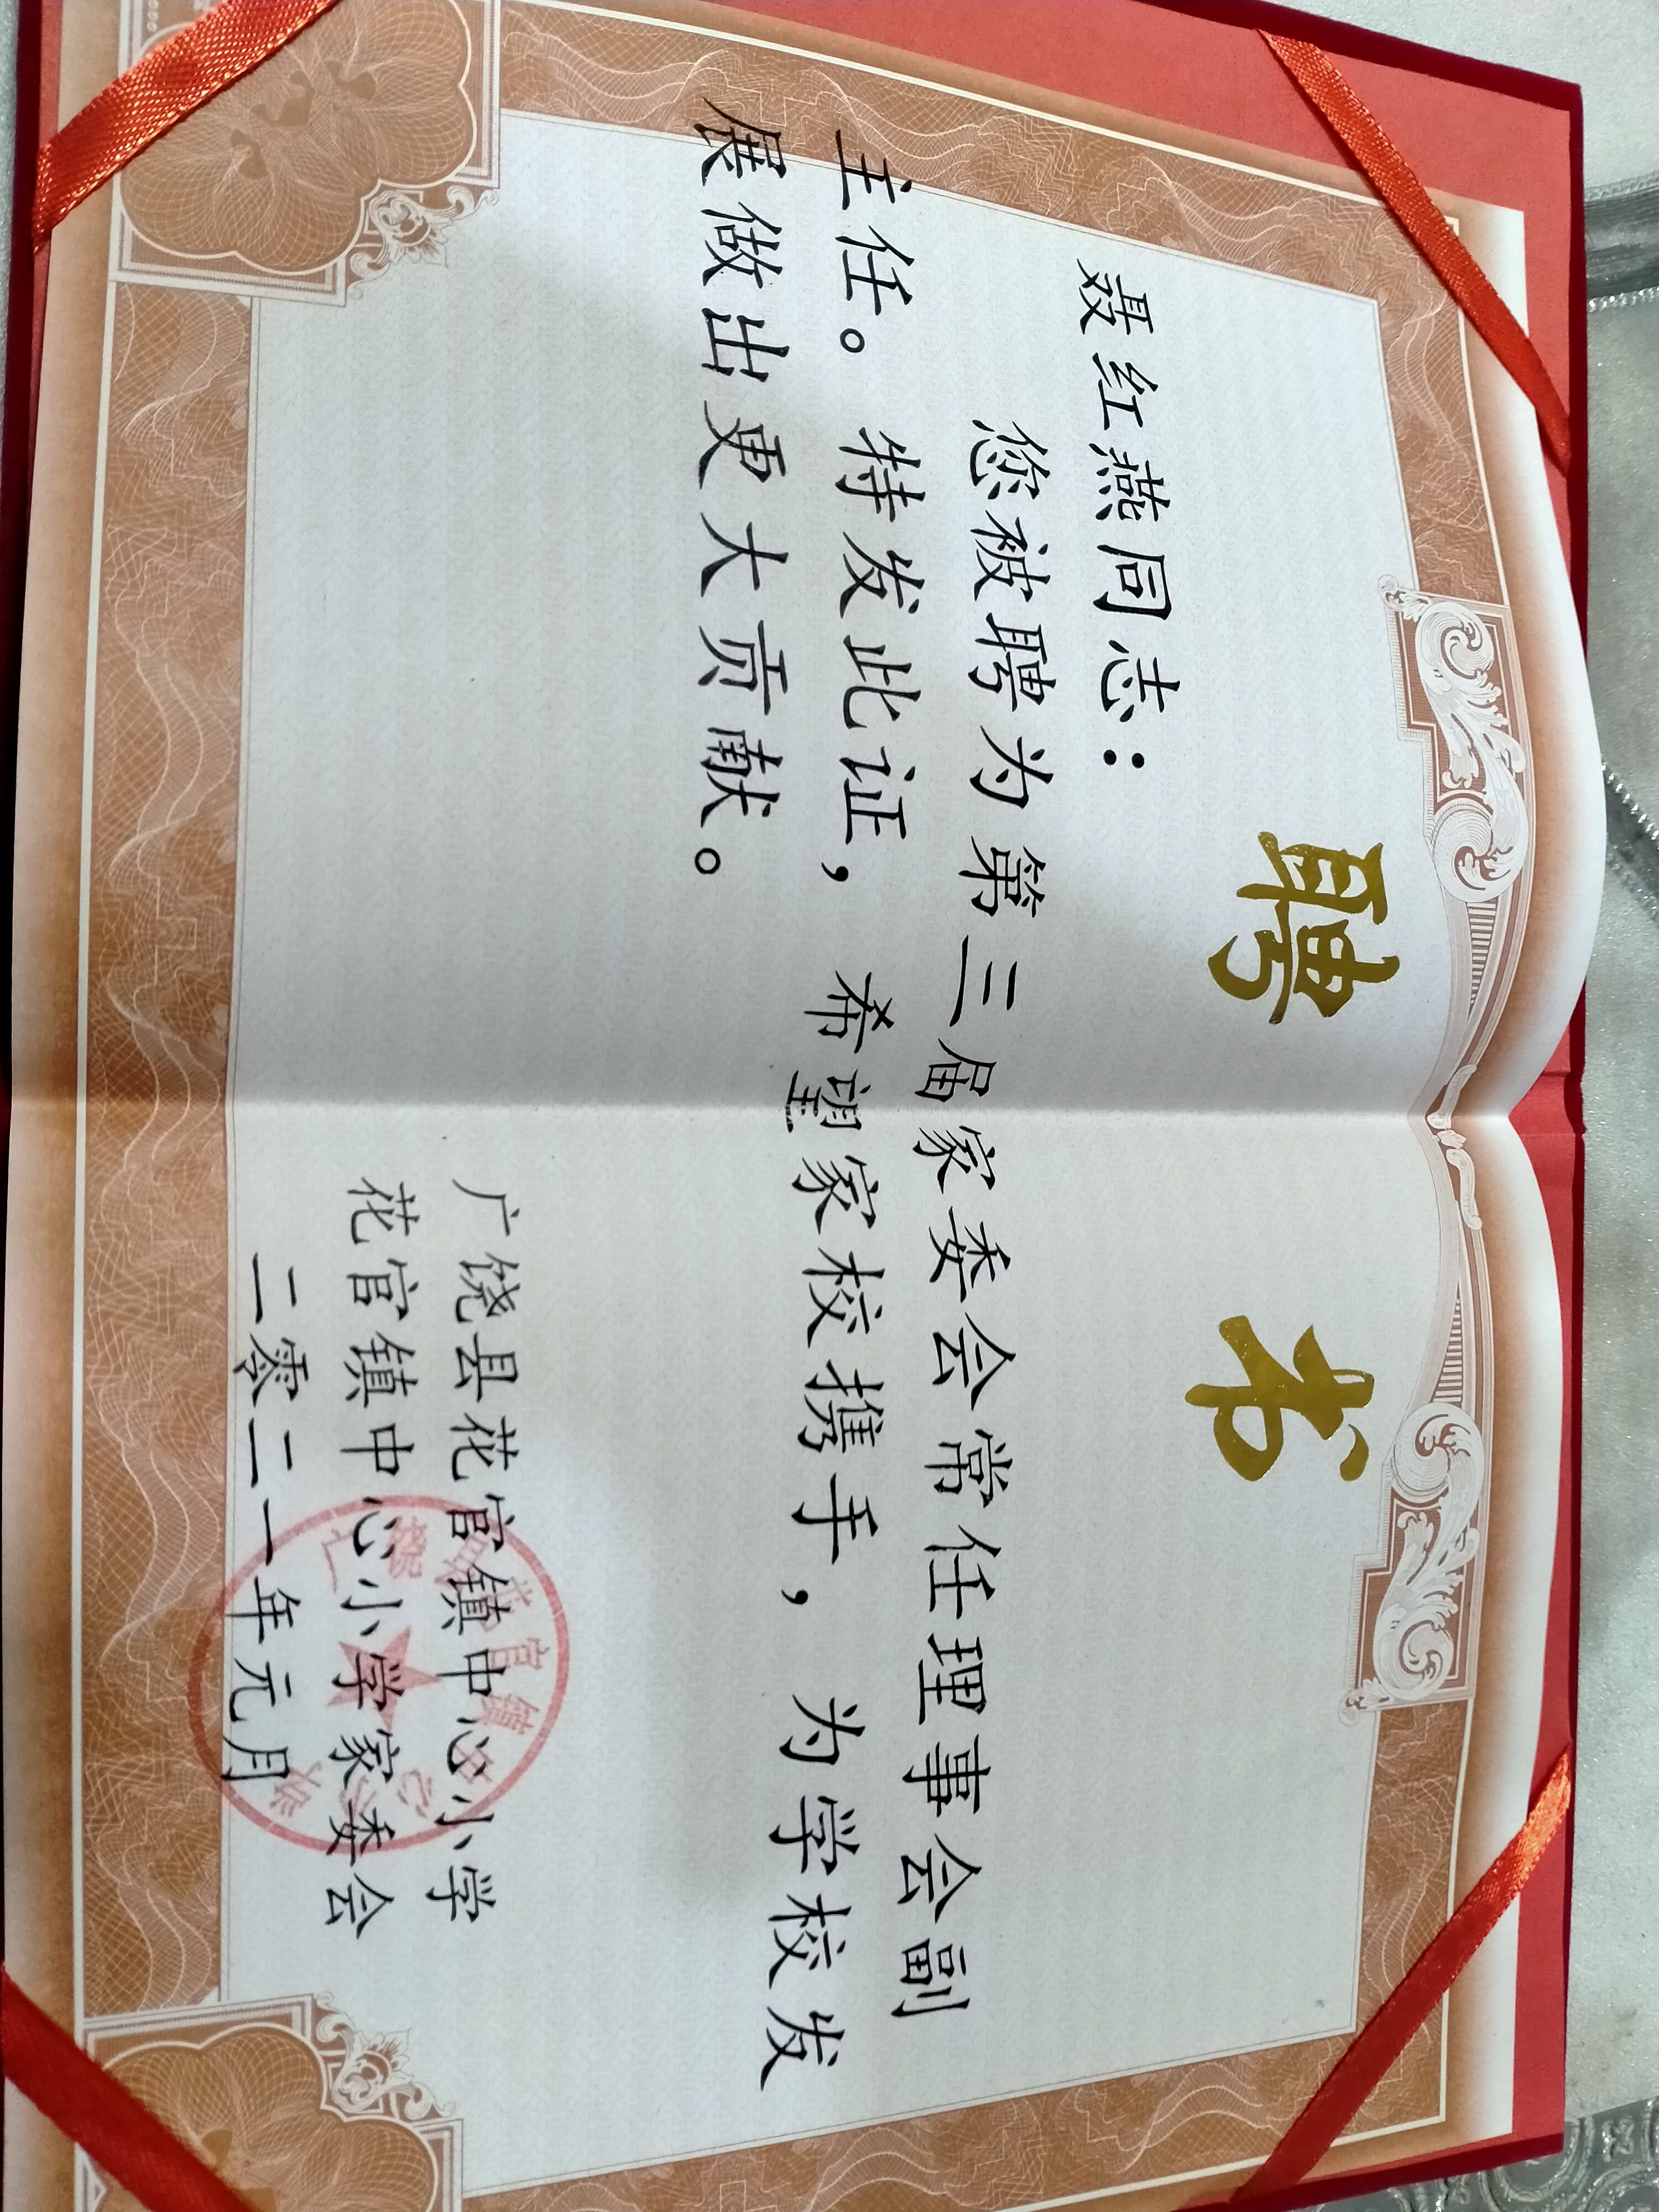 聘书
聂红燕同志：
您被聘为第三届家委会常任理事会副
主任。特发此证，希望家校携手，为学校发
展做出更大贡献。
广饶县花官镇中心小学
花官镇中心小学家委会
二零二一年元月